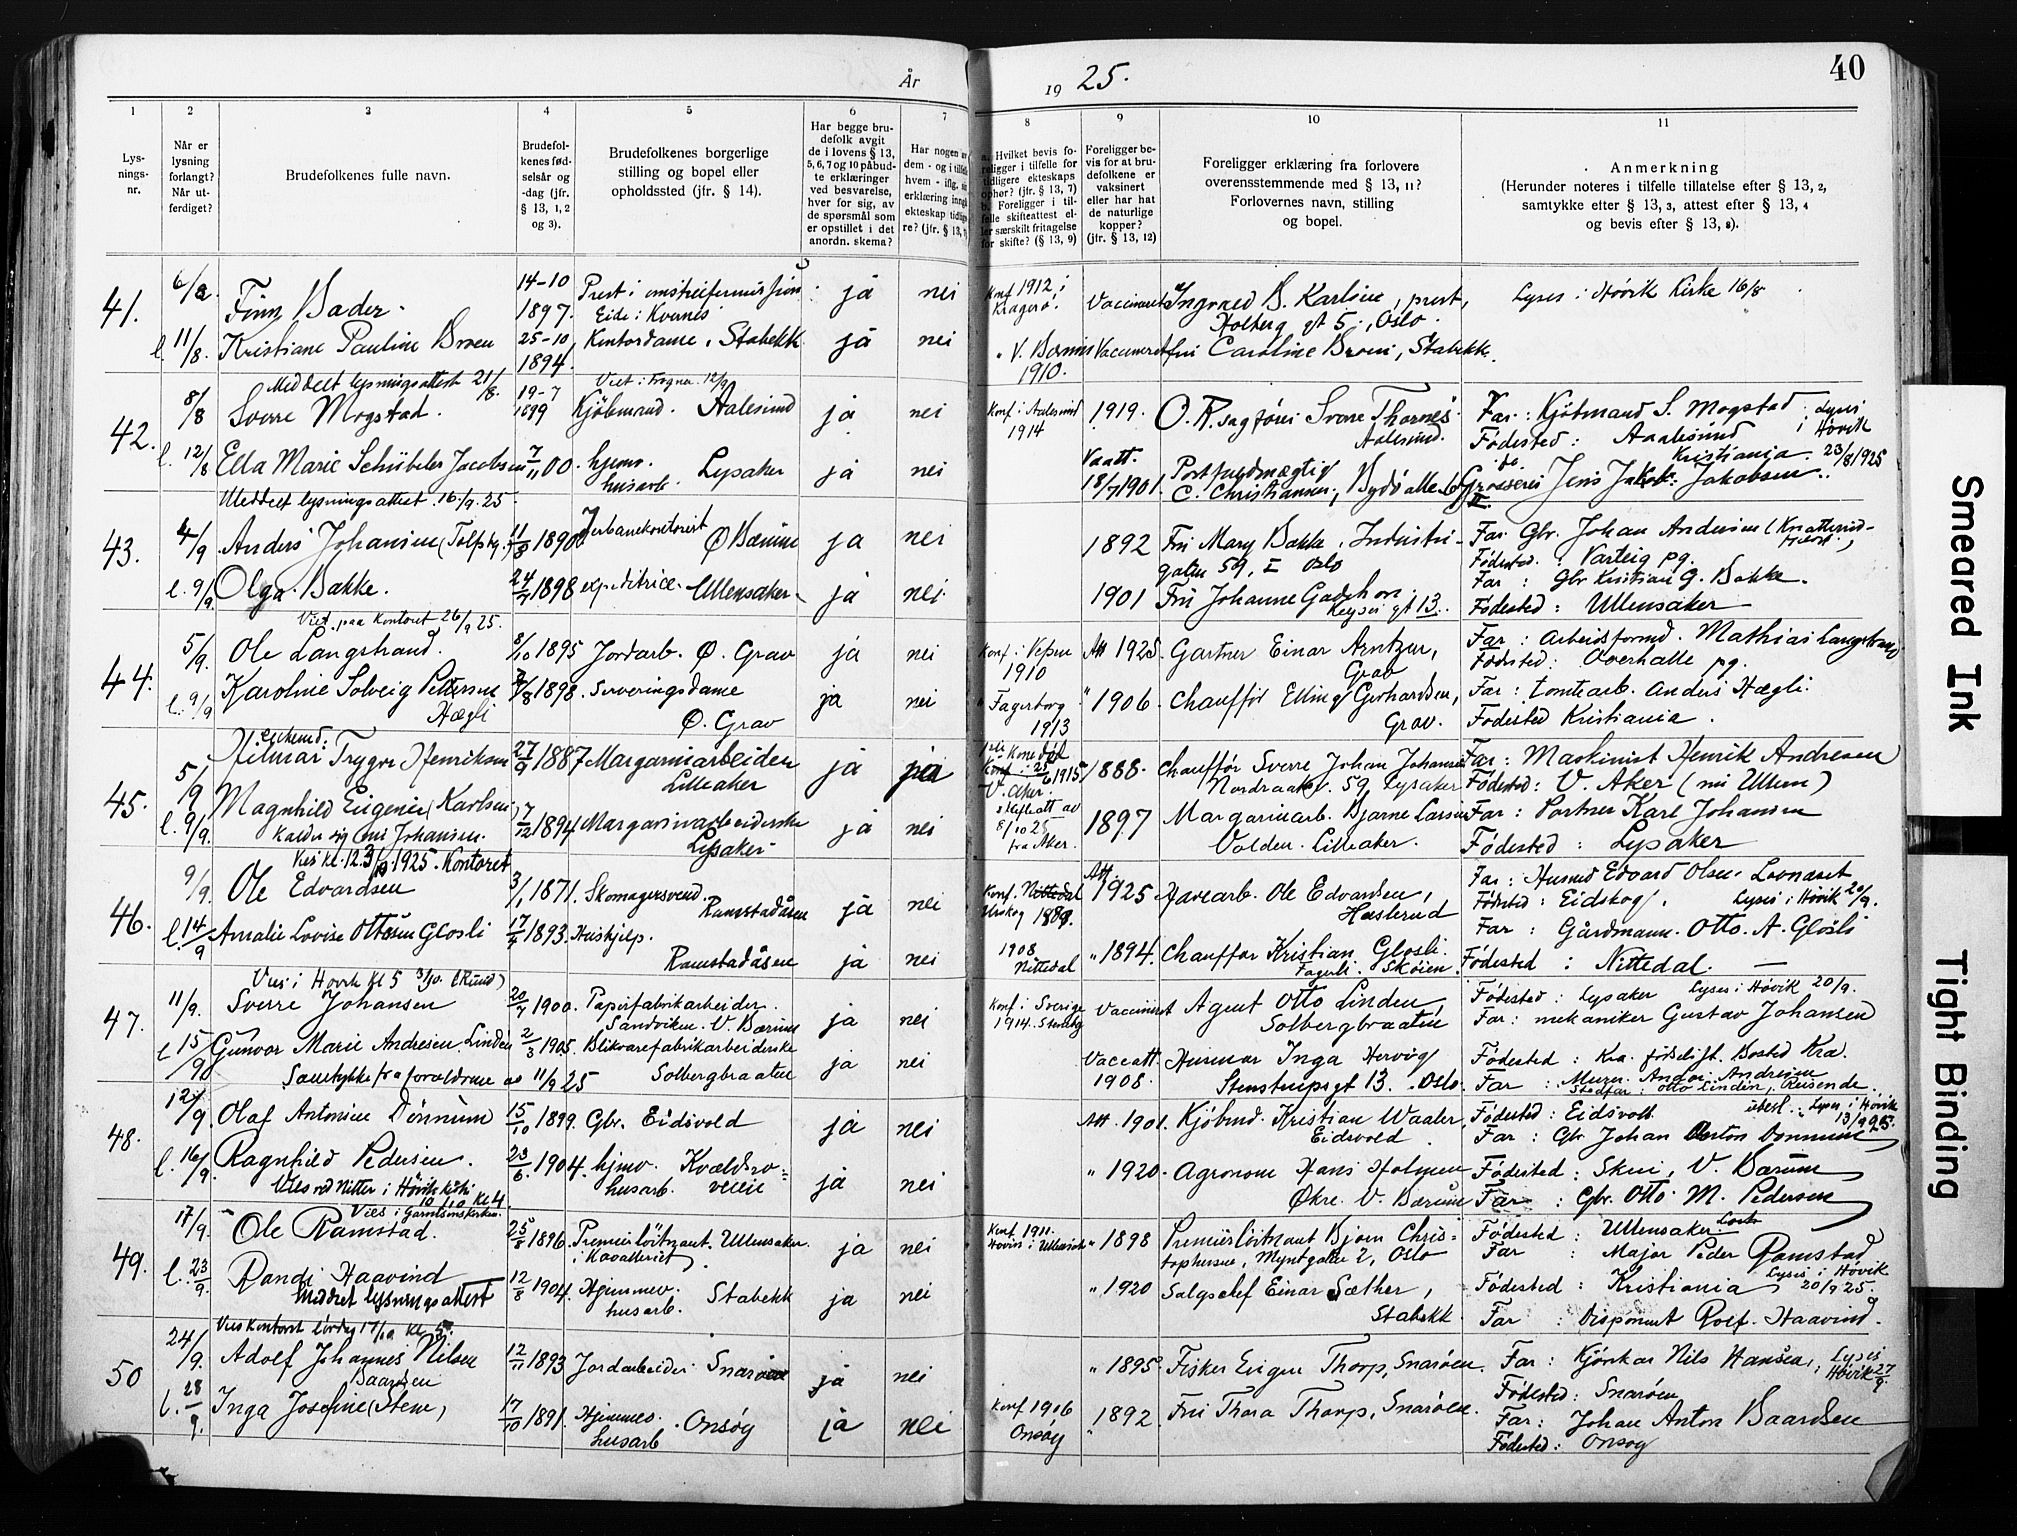 År
19 25.
40
1
2
3
4
5
6
7
8
9
10
11
Lys-
nings-
nr.
Når er
lysning
forlangt?
Når ut-
ferdiget?
Brudefolkenes fulle navn.
Brudefol-
kenes fød-
selsår og
-dag (jfr.
§ 13, 1, 2
og 3).
Brudefolkenes borgerlige
stilling og bopel eller
opholdssted (jfr. § 14).
Har begge bru-
defolk avgit
de i lovens § 13,
5, 6, 7 og 10 påbud-
te erklæringer
ved besvarelse,
hver for sig, av
de spørsmål som
er opstillet i det
anordn. skema?
Har nogen av
dem - og i tilfelle
hvem - iflg. sin
erklæring inngått
ekteskap tidlige-
re? (jfr. § 13,
a. Hvilket bevis fo-
religger i tilfelle for
tidligere ekteskaps
ophør? (jfr. § 13, 7)
b. Foreligger i til-
felle skifteattest el-
ler særskilt fritagelse
for skifte? (§ 13, 9)
Foreligger be-
vis for at bru-
defolkene er
vaksinert
eller har hat
de naturlige
kopper?
(jfr. § 13, 12)
Foreligger erklæring fra forlovere
overensstemmende med § 13, 11?
Forlovernes navn, stilling
og bopel.
Anmerkning
(Herunder noteres i tilfelle tillatelse efter § 13, 2,
samtykke efter § 13, 3, attest efter § 13, 4
og bevis efter § 13, 8).
41. 6/8 Finn Bader. 14-10 1897. Prest i Eide: Kvernes ja nei Konf 1912 i Kragerø. Vaccineret B. Karlsen, prest, Holberg gt 5, Oslo. Lyses i Høvik Kirke 16/8
l. 11/8. Kristiane Pauline Broen 25-10 1894. Kontordame, Stabekk ja nei V. Bærum 1910. Vaccineret Caroline Broen, Stabekk.
Meddelt lysningsattest 21/8.
Viet: Fragner 12/9
42. 8/8 Sverre Mogstad. 19-7 1899 Kjøbmand. Aalesund ja nei Konf. i Aalesund 1914 1919. O.R.sagfører Sverre Thornes Aalesund. Far: Kjøbmand S. Mogstad
Fødested: Aalesund Lyses i Høvik 23/8 1925
l. 12/8 Ella Marie Schübeler Jacobsen 7/11 00. hjemv. husarb. Lysaker ja nei Vaatt. 18/7 1901. Postfuldmægtig C. Christiansen, Bydø alle Kristiania. Grosserer Jens Jakob Jakobsen.
Meddelt lysningsattest. 16/9. 25.
43. 4/9 Anders Johansen 11/8 1890 Jernbanekontorist Ø Bærum ja nei 1892 Frk Mary Bakke, Industri-
gaten 59, I Oslo Far. Gbr. Johan Andersen
Fødested: Varteig pg.
l. 9/9 Olga Bakke. 24/7 1898 expeditrice. Ullensaker ja nei 1901 Frk Johanne Gadehorn Keysers gt 13. Far: Gbr Kristian G. Bakke.
Fødested: Ullensaker
Viet paa kontoret 26/9 25.
44. 5/9. Ole Langstrand. 8/10 1895 Jordarb. Ø. Grav ja nei Konf. i Vefsen 1910 Att 1925. Gartner Einar Arntzen, Grav Far: Arbeidsformd. Mathias Langstrand
Fødested: Overhalle pg.
l. 9/9 Karoline Solveig Pettersen Hægli 1898. Serveringsdame Ø. Grav ja nei Fagerborg 1913 " 1906 Chauffør Elling Gerhardsen, Grav. Far: tomtearb. Anders Hægli.
Fødested Kristiania.
45. 5/9 Hilmar Trygve Henriksen 27/9 1887 Margarinarbeider Lilleaker ja ja V. Aker. 1888. Chauffør Sverre Johan Johansen Nordraaks v. 59 Lysaker Far: Maskinist Henrik Andresen
Fødested: V. Aker (nu Ullern)
l. 9/9. Magnhild Eugenie (Karlsen) kalder sig nu Johansen. 7/12 1894 Margarinarbeiderske Lysaker ja nei skifteatt av 8/10 25 fra Aker. 1897 Margarinarb. Bjarne Larsen Volden. Lilleaker. Far: Portner Karl Johansen
Fødested: Lysaker
1925. Kontoret
46. 9/9. Ole Edvardsen 3/1 1871. Skomagersvend. Ramstadåsen ja nei Konf. Nittedal Urskog Att. 1925 Ole Edvardsen, Haslerud Far: Husmd Edvard Olsen
Fødested: Eidskog. Lyses i Høvik 20/9.
l. 14/9 Amalie Lovise Ottesen Glosli 17/7 1893. Hushjelp. Ramstadåsen ja nei 1908 Nittedal " 1894. Chauffør Kristian Glosli Fagerli. Skøien. Far: Gårdmann. Otto. A. Glosli
Fødested: Nittedal. —
Vies i Høvik Kl 5 3/10. (Ruud)
47. 11/9. Sverre Johansen 20/7 1900. Papirfabrikarbeider. Sandviken. V. Bærum ja nei Konf. i Sverige 1914. Vaccineret Agent Otto Linden Solbergbraaten Fødested: Lysaker Lyses i Høvik 20/9.
Far: mekaniker Gustav Johansen
l 15/9 Gunvor Marie Andresen. Linden 2/3 1905. Blikvarefabrikarbeiderske Solbergbraaten ja nei Vaccatt. 1908. Inga Hervig Stenstrupsgt 13. Oslo. Fødested: Kra.
Samtykke fra forældrene av 11/9 25
Far: Murer. Andr. Andresen
Stedfar: Otto Linden, Reisende.
48. 12/9. Olaf Antonius Dønnum 15/10 1899. Gbr. Eidsvold ja nei Att. 1901. Kjøbmd. Kristian Waaler, Eidsvold. Fødested: Eidsvoll Lyses i Høvik 13/9 25.
Far: Gbr Johan Anton Dønnum
l. 16/9. Ragnhild Pedersen. 23/6. 1904. hjmv. husarb. ja nei " 1920. Agronom Hans Holmen Økre. V. Bærum Fødested: Skui, V. Bærum
Far: Gbr. Otto M. Pedersen
Vies ved Nitter i Høvik kirke 10/10 Kl 4.
49. 17/9. Ole Ramstad. 25/8 1896. Premierløitnant. i Kavalleriet Ullensaker ja nei Konf. 1911. Hovin i Ullensaker " 1898 Premierløitnant Bjørn Chris-
tophersen, Myntgaten 2, Oslo Fødested: Ullensaker
Far: Major Peder Ramstad
l. 23/9. Randi Haavind 12/8 1904. Hjemmev. husarb. Stabekk ja nei " 1920 Salgschef Einar Sæther, Stabekk Fødested: Kristiania Lyses i Høvik 20/9 25.
Meddelt lysningsattest
Far: Disponent Rolf. Haavind.
Vies kontoret lørdag 17/10 kl. 5.
50 24/9. Adolf Johannes Nilsen 12/11 1893 Jordarbeider Snarøen ja nei " 1895 Fisker Eugen Thorp, Snarøen. Far: Nils Hansen, Lyses i Høvik 27/9.
Fødested: Snarøen
l. 28/9. Inga Josefine (Stene) Baardsen 17/10 1891. Hjemmev. husarb Onsøy ja nei Konf 1906 Onsøy 1892. Frk Thora Thorp, Snarøen. Far: Johan Anton Baardsen
Fødested: Onsøy
Smeared Ink
Tight Binding